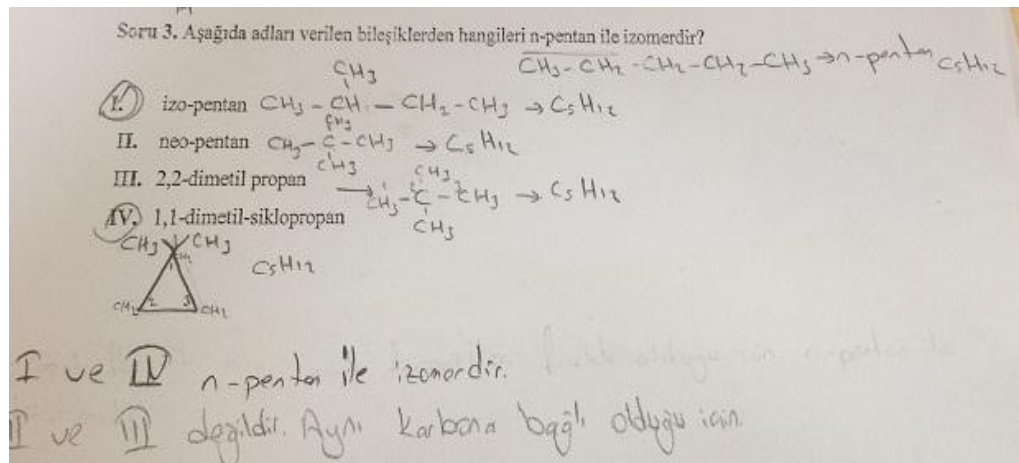 Soru 3. Aşağıda adları verilen bileşiklerden hangileri n-pentan ile izomerdir?
CH3-CH2-CH2-CH2-CH3→n-pentan C5H12
CH3
I. izo-pentan CH3-CH-CH2-CH3→C5H12
CH3
II. neo-pentan CH3-C-CH3→C5H12
CH3
III. 2,2-dimetil propan
CH3
→CH3-C-CH3→C5H12
1 2 3
CH3
IV. 1,1-dimetil-siklopropan
CH3 CH3
1
C5H12
CH2 2 3 CH2
I ve IV n-pentan ile izomerdir.
II ve III değildir. Aynı karbona bağlı olduğu için.